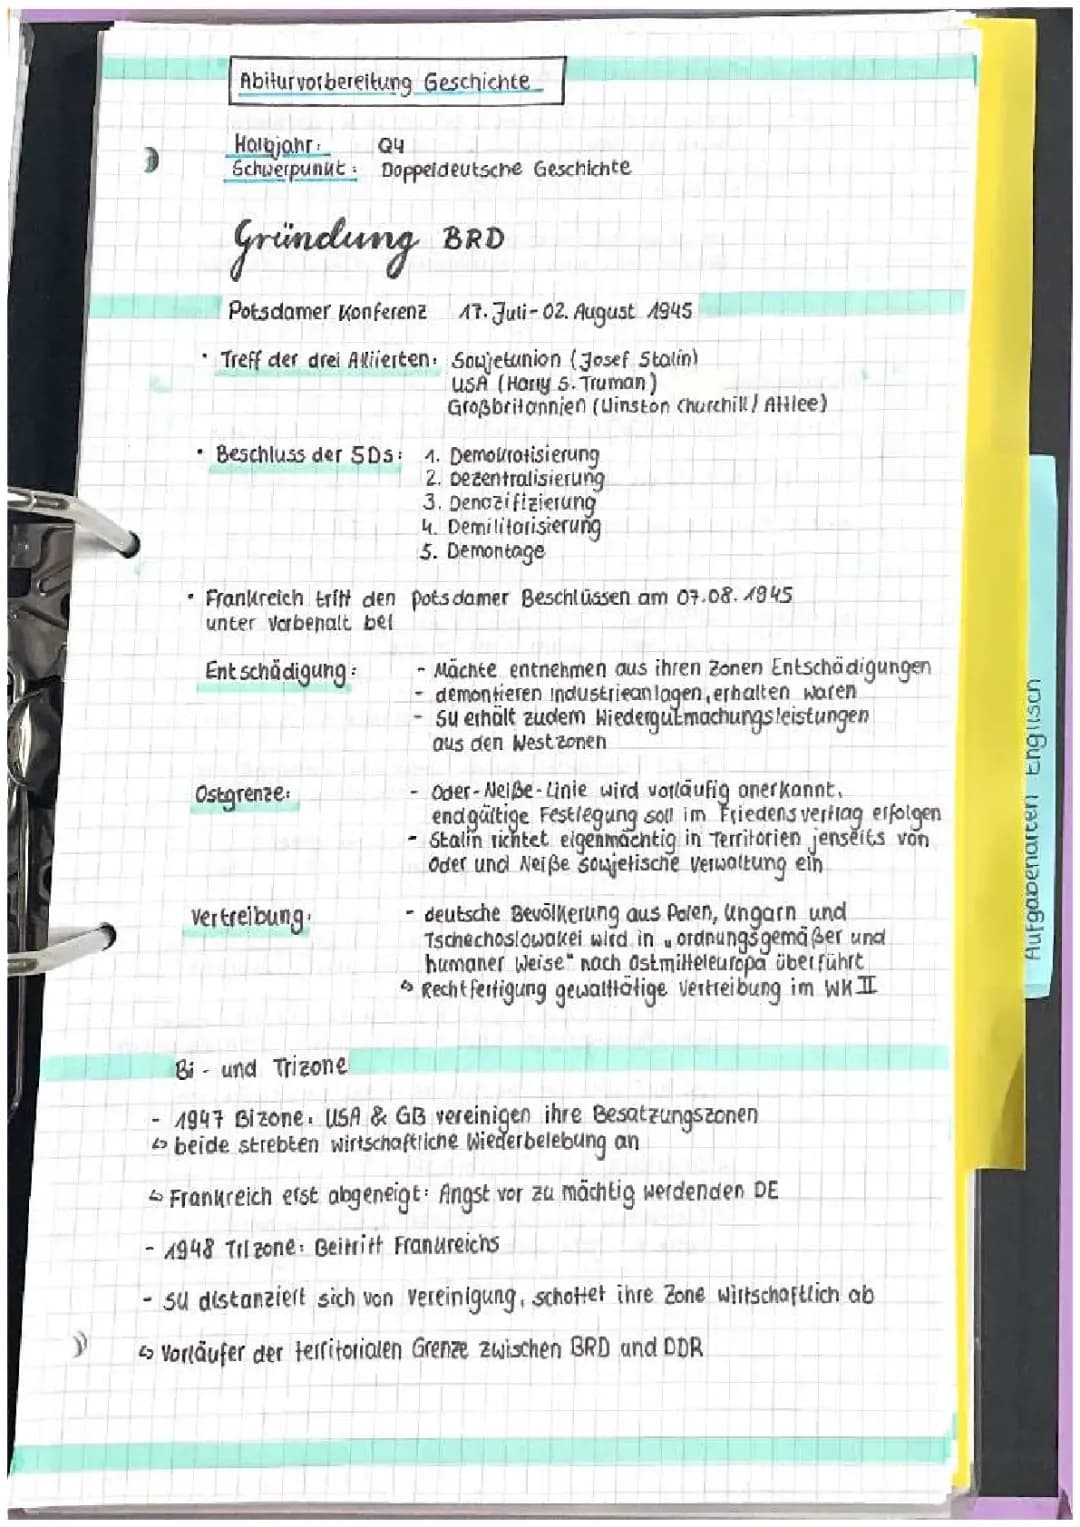 Abiturvorbereitung Geschichte
Halbjahr: Q4
Schwerpunkt: Doppeldeutsche Geschichte
Gründung BRD
Potsdamer Konferenz 17. Juli - 02. August 1945
• Treff der drei Alliierten: Sowjetunion (Josef Stalin)
USA (Harry S. Truman)
Großbritannien (Winston Churchill / Attlee)
• Beschluss der 5Ds: 1. Demokratisierung
2. Dezentralisierung
3. Denazifizierung
4. Demilitarisierung
5. Demontage
• Frankreich tritt den Potsdamer Beschlüssen am 07.08.1945
unter Vorbehalt bei
Entschädigung: - Mächte entnehmen aus ihren Zonen Entschädigungen
- demontieren Industrieanlagen, erhalten waren
- SU erhält zudem Wiedergutmachungsleistungen
aus den Westzonen
Ostgrenze: - Oder-Neiße-Linie wird vorläufig anerkannt,
endgültige Festlegung soll im Friedensvertrag erfolgen
- Stalin richtet eigenmächtig in Territorien jenseits von
Oder und Neiße sowjetische Verwaltung ein
Vertreibung: - deutsche Bevölkerung aus Polen, Ungarn und
Tschechoslowakei wird in „ordnungsgemäßer und
humaner Weise" nach Ostmitteleuropa überführt
↳ Rechtfertigung gewalttätige Vertreibung im WK II
Bi- und Trizone
- 1947 Bizone: USA & GB vereinigen ihre Besatzungszonen
↳ beide strebten wirtschaftliche Wiederbelebung an
↳ Frankreich erst abgeneigt: Angst vor zu mächtig werdenden DE
- 1948 Trizone: Beitritt Frankreichs
- SU distanziert sich von Vereinigung, schottet ihre Zone wirtschaftlich ab
↳ Vorläufer der territorialen Grenze zwischen BRD und DDR
Aufgabenarten Englisch